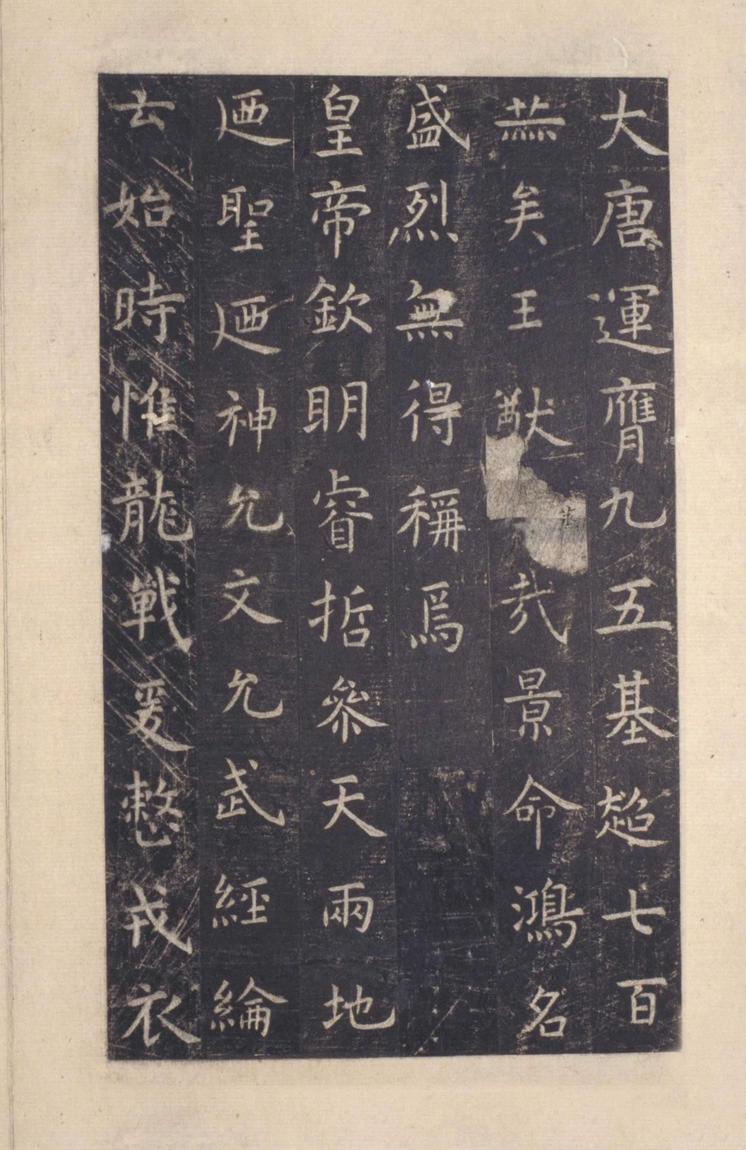 大唐運膺九五基趍七百
蕪矣王猷哉景命鴻名
盛烈無得稱焉
皇帝欽明睿哲參天兩地
廼聖廼神允文允武經綸
云始時惟龍戰爰整戎衣